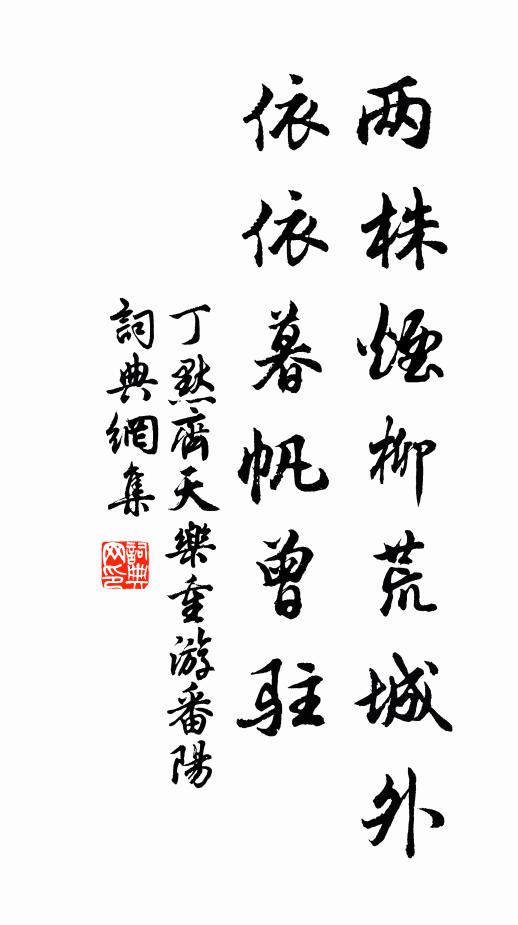 两株煙柳荒城外
依依暮帆曾駐
丁默齊天樂重游番陽
詞典網集
詞典網印